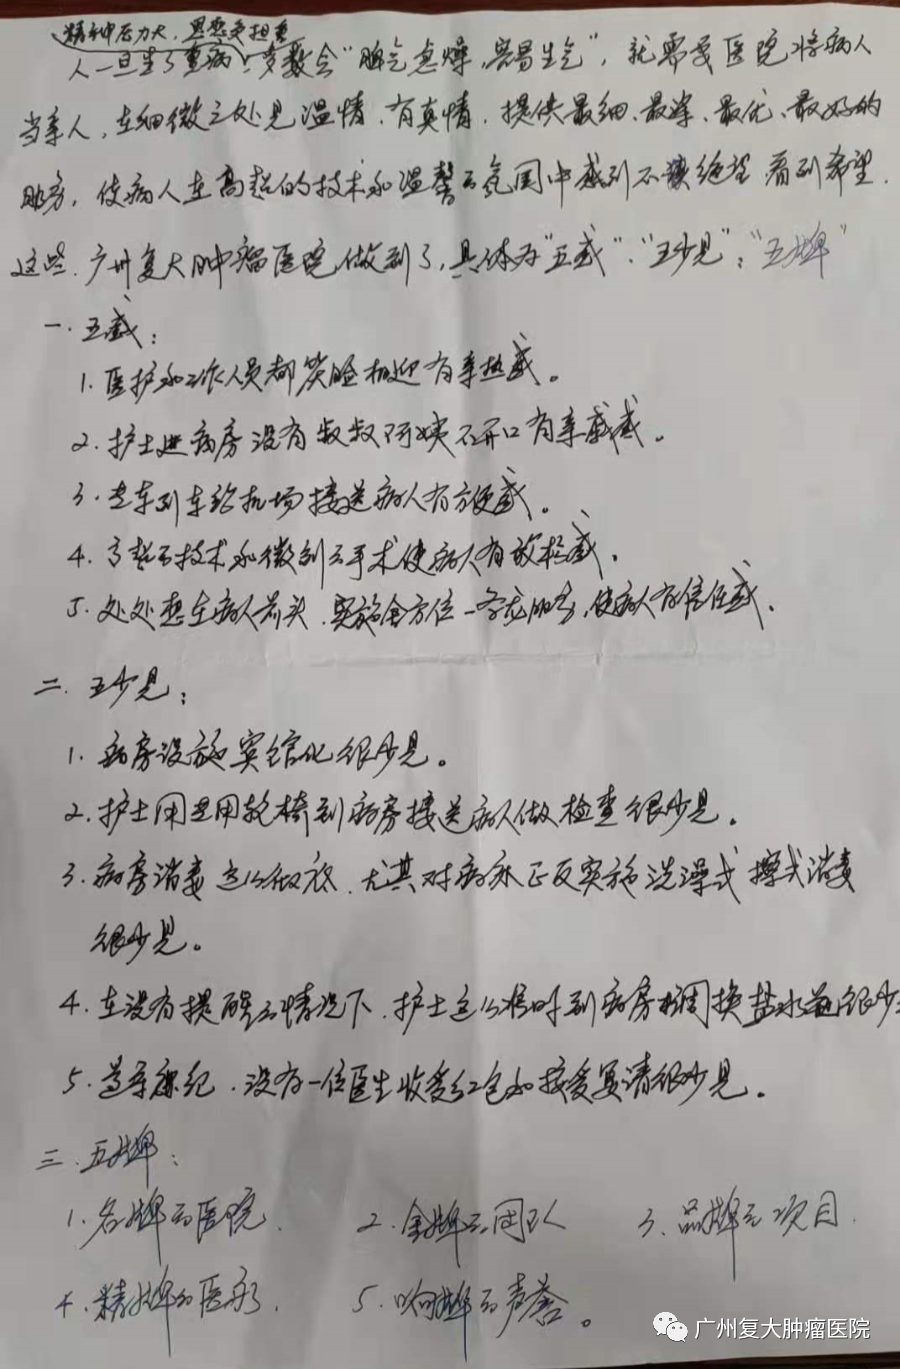 精神压力大，思想负担重
人一旦生了重病，多数会“脾气急燥，容易生气”，就需要医院将病人
当亲人，在细微之处见温情、有真情，提供最细、最深、最优、最好的
服务，使病人在高超的技术和温馨的氛围中感到不是绝望，看到希望。
这些，广州复大肿瘤医院做到了，具体为“五感”、“五少见”、“五牌”
一、五感：
1. 医护和工作人员都笑脸相迎有亲热感。
2. 护士进病房没有叔叔阿姨不开口有亲戚感。
3. 专车到车站机场接送病人有方便感。
4. 高超的技术和微创的手术使病人有放松感。
5. 处处想在病人前头，实施全方位一条龙服务，使病人有信任感。
二、五少见：
1. 病房设施宾馆化很少见。
2. 护士用专用轮椅到病房接送病人做检查很少见。
3. 病房消毒这么彻底，尤其对病床正反实施洗澡式擦式消毒
很少见。
4. 在没有提醒的情况下，护士这么准时到病房调换盐水很少
5. 遵守廉纪，没有一位医生收受红包和接受宴请很少见。
三、五牌：
1. 名牌的医院、 2. 金牌的团队 3. 品牌的项目、
4. 精牌的医疗、 5. 响牌的声誉。
广州复大肿瘤医院